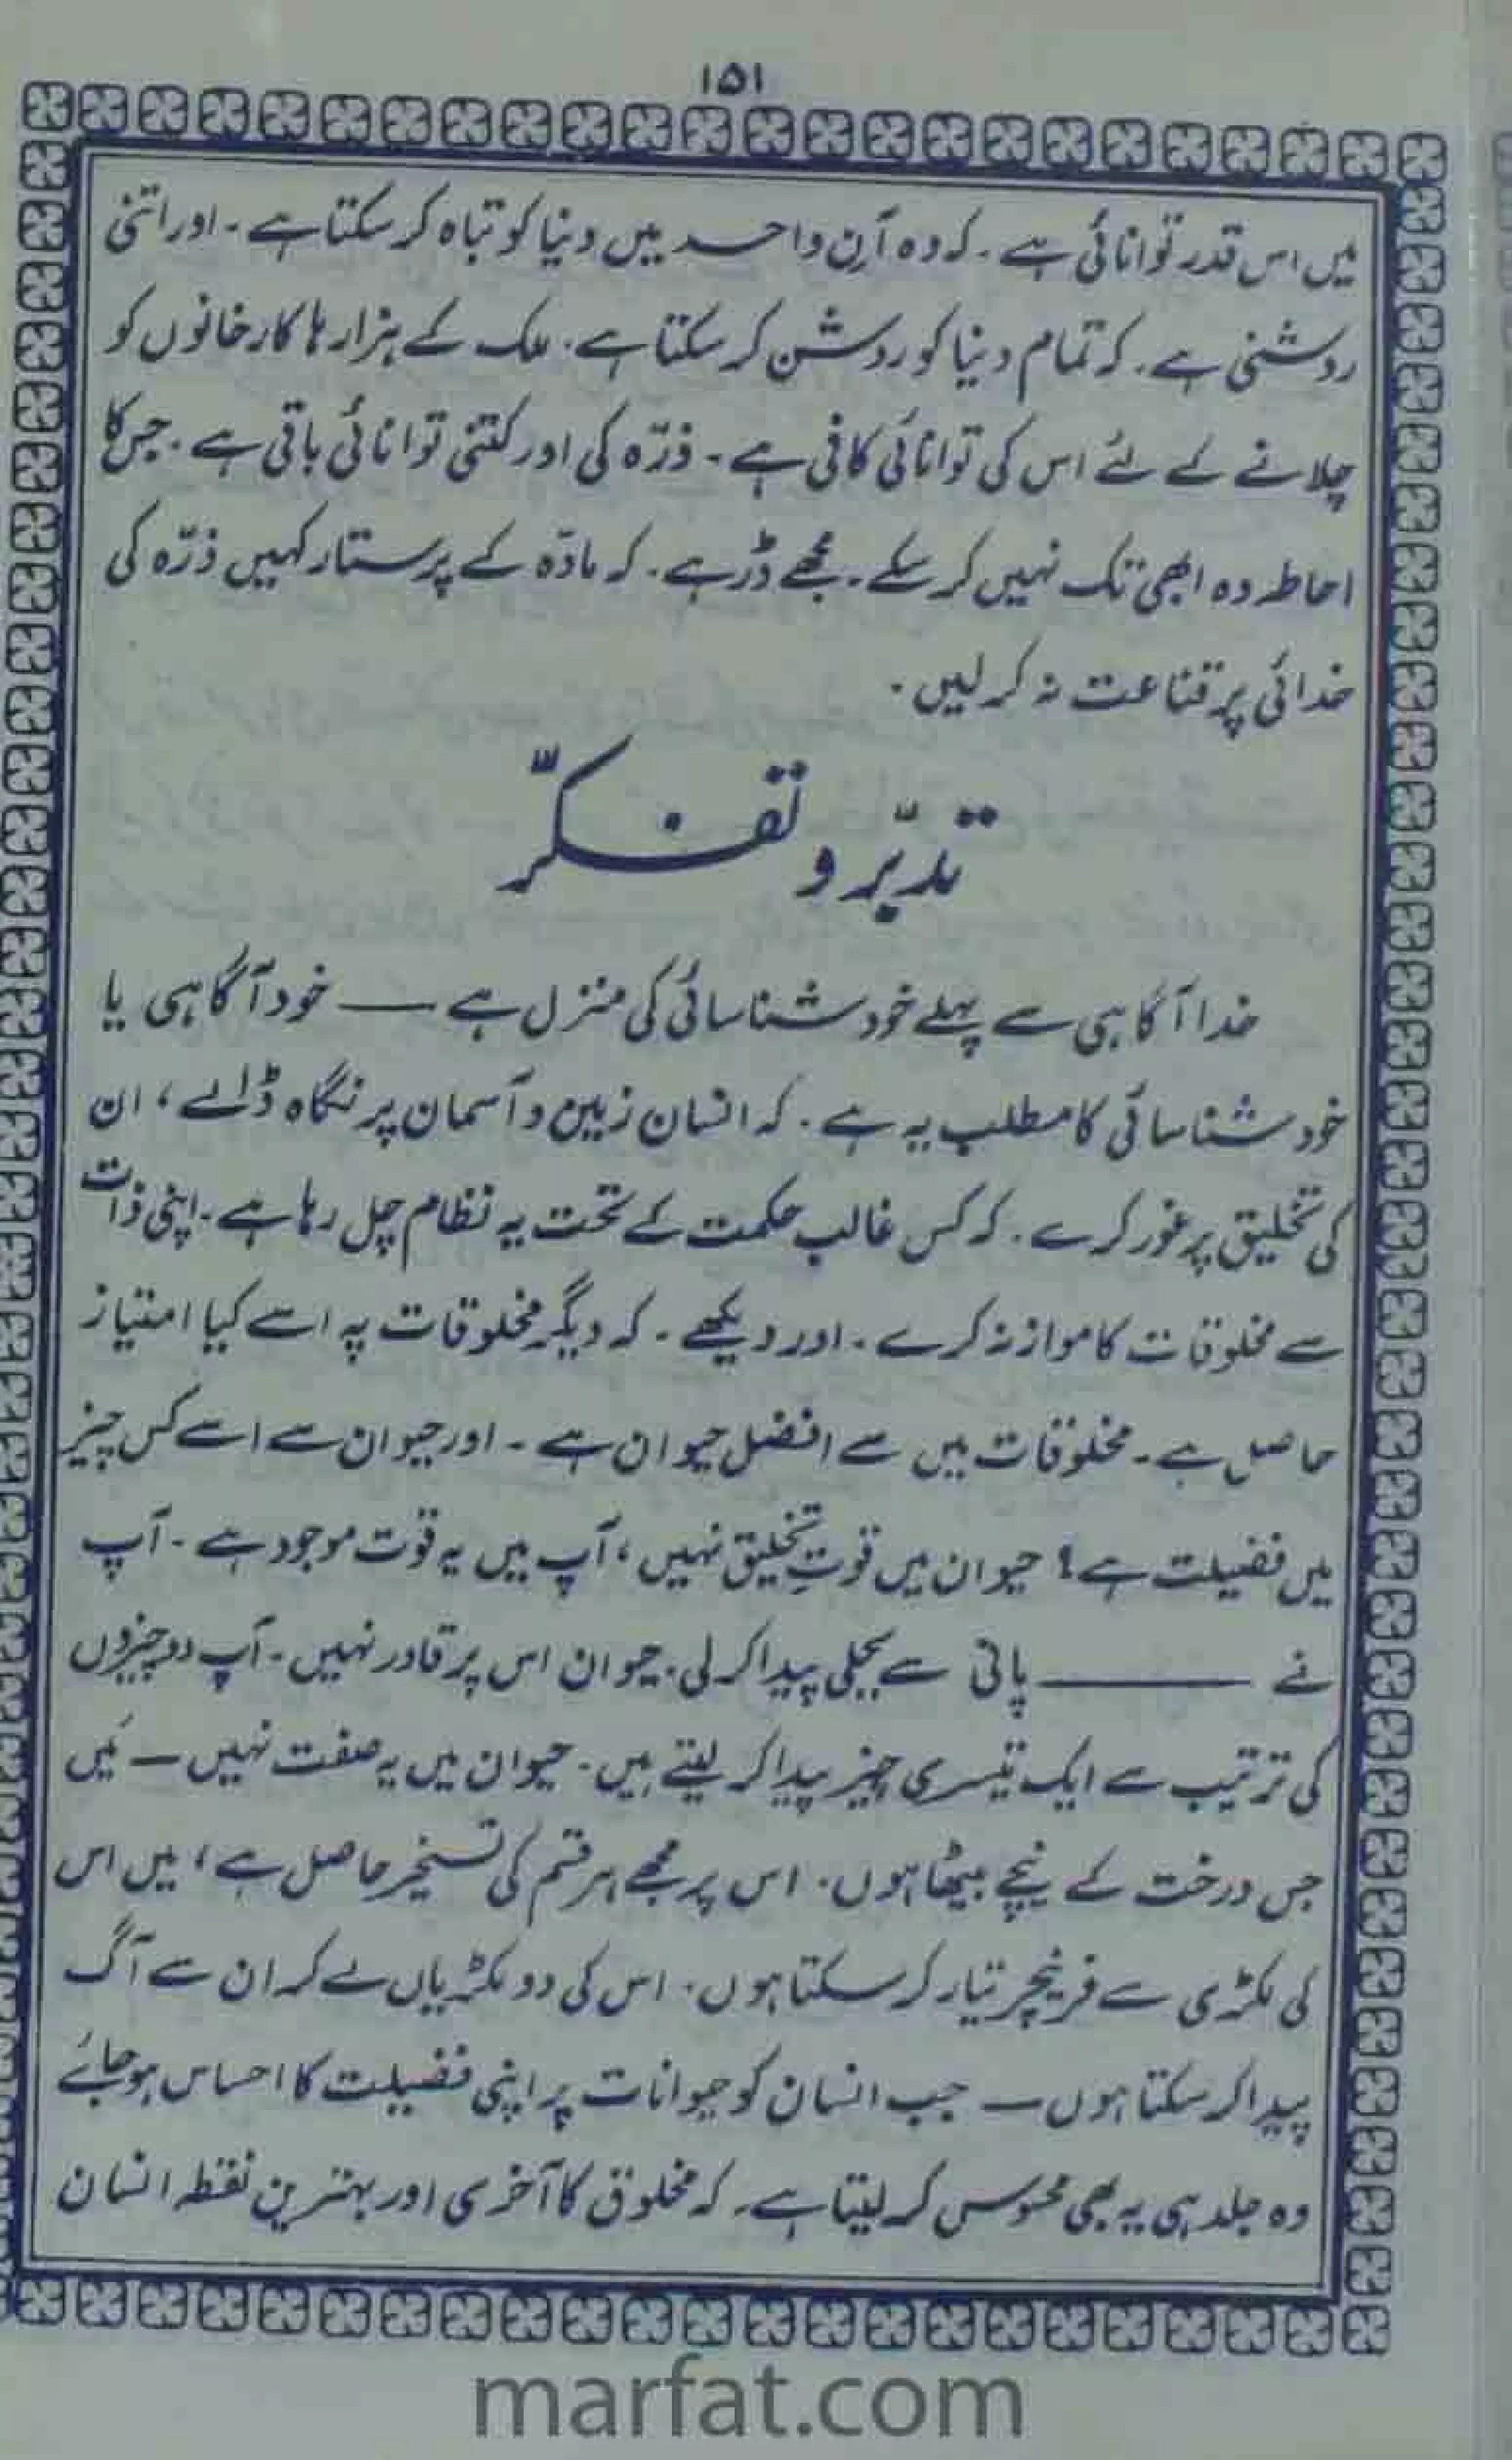 ۱۵۱
میں اس قدر توانائی ہے ۔ کہ وہ آنِ واحد میں دنیا کو تباہ کر سکتا ہے ۔ اور اتنی
روشنی ہے ۔ کہ تمام دنیا کو روشن کر سکتا ہے ۔ ملک کے ہزار ہا کارخانوں کو
چلانے کے لئے اس کی توانائی کافی ہے ۔ ذرّہ کی اور کتنی توانائی باقی ہے ۔ جس کا
احاطہ وہ ابھی تک نہیں کر سکے ۔ مجھے ڈر ہے ۔ کہ مادّہ کے پرستار کہیں ذرّہ کی
خدائی پر قناعت نہ کر لیں ۔
تدبّر و تفکّر
خدا آگاہی سے پہلے خود شناسائی کی منزل ہے — خود آگاہی یا
خود شناسائی کا مطلب یہ ہے ۔ کہ انسان زمین و آسمان پر نگاہ ڈالے ، ان
کی تخلیق پر غور کرے ۔ کہ کس غالب حکمت کے تحت یہ نظام چل رہا ہے ۔ اپنی ذات
سے مخلوقات کا موازنہ کرے ۔ اور دیکھے ۔ کہ دیگر مخلوقات پہ اسے کیا امتیاز
حاصل ہے ۔ مخلوقات میں سے افضل حیوان ہے ۔ اور حیوان سے اسے کس چیز
میں فضیلت ہے ؟ حیوان میں قوتِ تخلیق نہیں ، آپ میں یہ قوت موجود ہے ۔ آپ
نے ——— پانی سے بجلی پیدا کر لی ۔ حیوان اس پر قادر نہیں ۔ آپ دو چیزوں
کی ترتیب سے ایک تیسری چیز پیدا کر لیتے ہیں ۔ حیوان میں یہ صفت نہیں — مَیں
جس درخت کے نیچے بیٹھا ہوں ۔ اس پر مجھے ہر قسم کی تسخیر حاصل ہے ، میں اس
کی لکڑی سے فرنیچر تیار کر سکتا ہوں ۔ اس کی دو لکڑیاں لے کر ان سے آگ
پیدا کر سکتا ہوں — جب انسان کو حیوانات پر اپنی فضیلت کا احساس ہو جائے
وہ جلد ہی یہ بھی محسوس کر لیتا ہے ۔ کہ مخلوق کا آخری اور بہترین نقطہ انسان
marfat.com